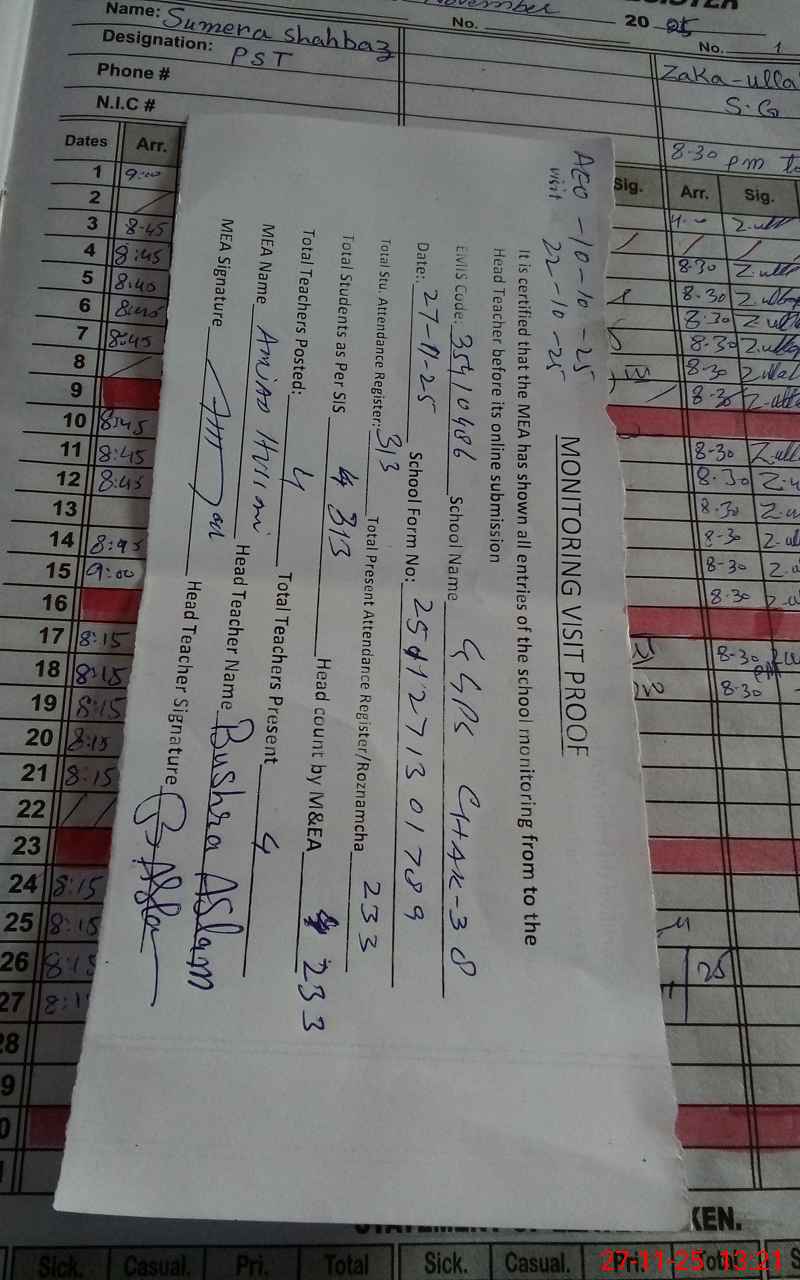 Name: Sumera Shahbaz
November
No.
20 25
Designation: PST
No. 1
Phone #
Zaka-ulla
N.I.C #
S.G
8-30 pm to
Dates Arr.
Sig. Arr. Sig.
1 9:00
2
3 8-45
4 8:45 8-30
5 8:40 8-30
6 8:40 8-30
7 8:45 8-30
8 8-30
9 8-30
10 8:45
11 8:45 8-30
12 8:45 8-30
13 8-30
14 8:45 8-30
15 9:00 8-30
16 8-30
17 8:15
18 8:15 8-30 pm
19 8:15 8-30
20 8:15
21 8:15
22
23
24 8:15
25 8:15
26 8:15 25
27 8:1
28
9
0
AEO visit -10-10-25
22-10-25
MONITORING VISIT PROOF
It is certified that the MEA has shown all entries of the school monitoring from to the
Head Teacher before its online submission
EMIS Code: 35410486 School Name GGPS CHAK-38
Date: 27-11-25 School Form No: 2511271301789
Total Stu. Attendance Register: 313 Total Present Attendance Register/Roznamcha 233
Total Students as Per SIS 313 Head count by M&EA 233
Total Teachers Posted: 4 Total Teachers Present 4
MEA Name Head Teacher Name Bushra Aslam
MEA Signature Head Teacher Signature B. Asla
KEN.
Sick. Casual. Pri. Total Sick. Casual. Pri. Total
27-11-25 13:21